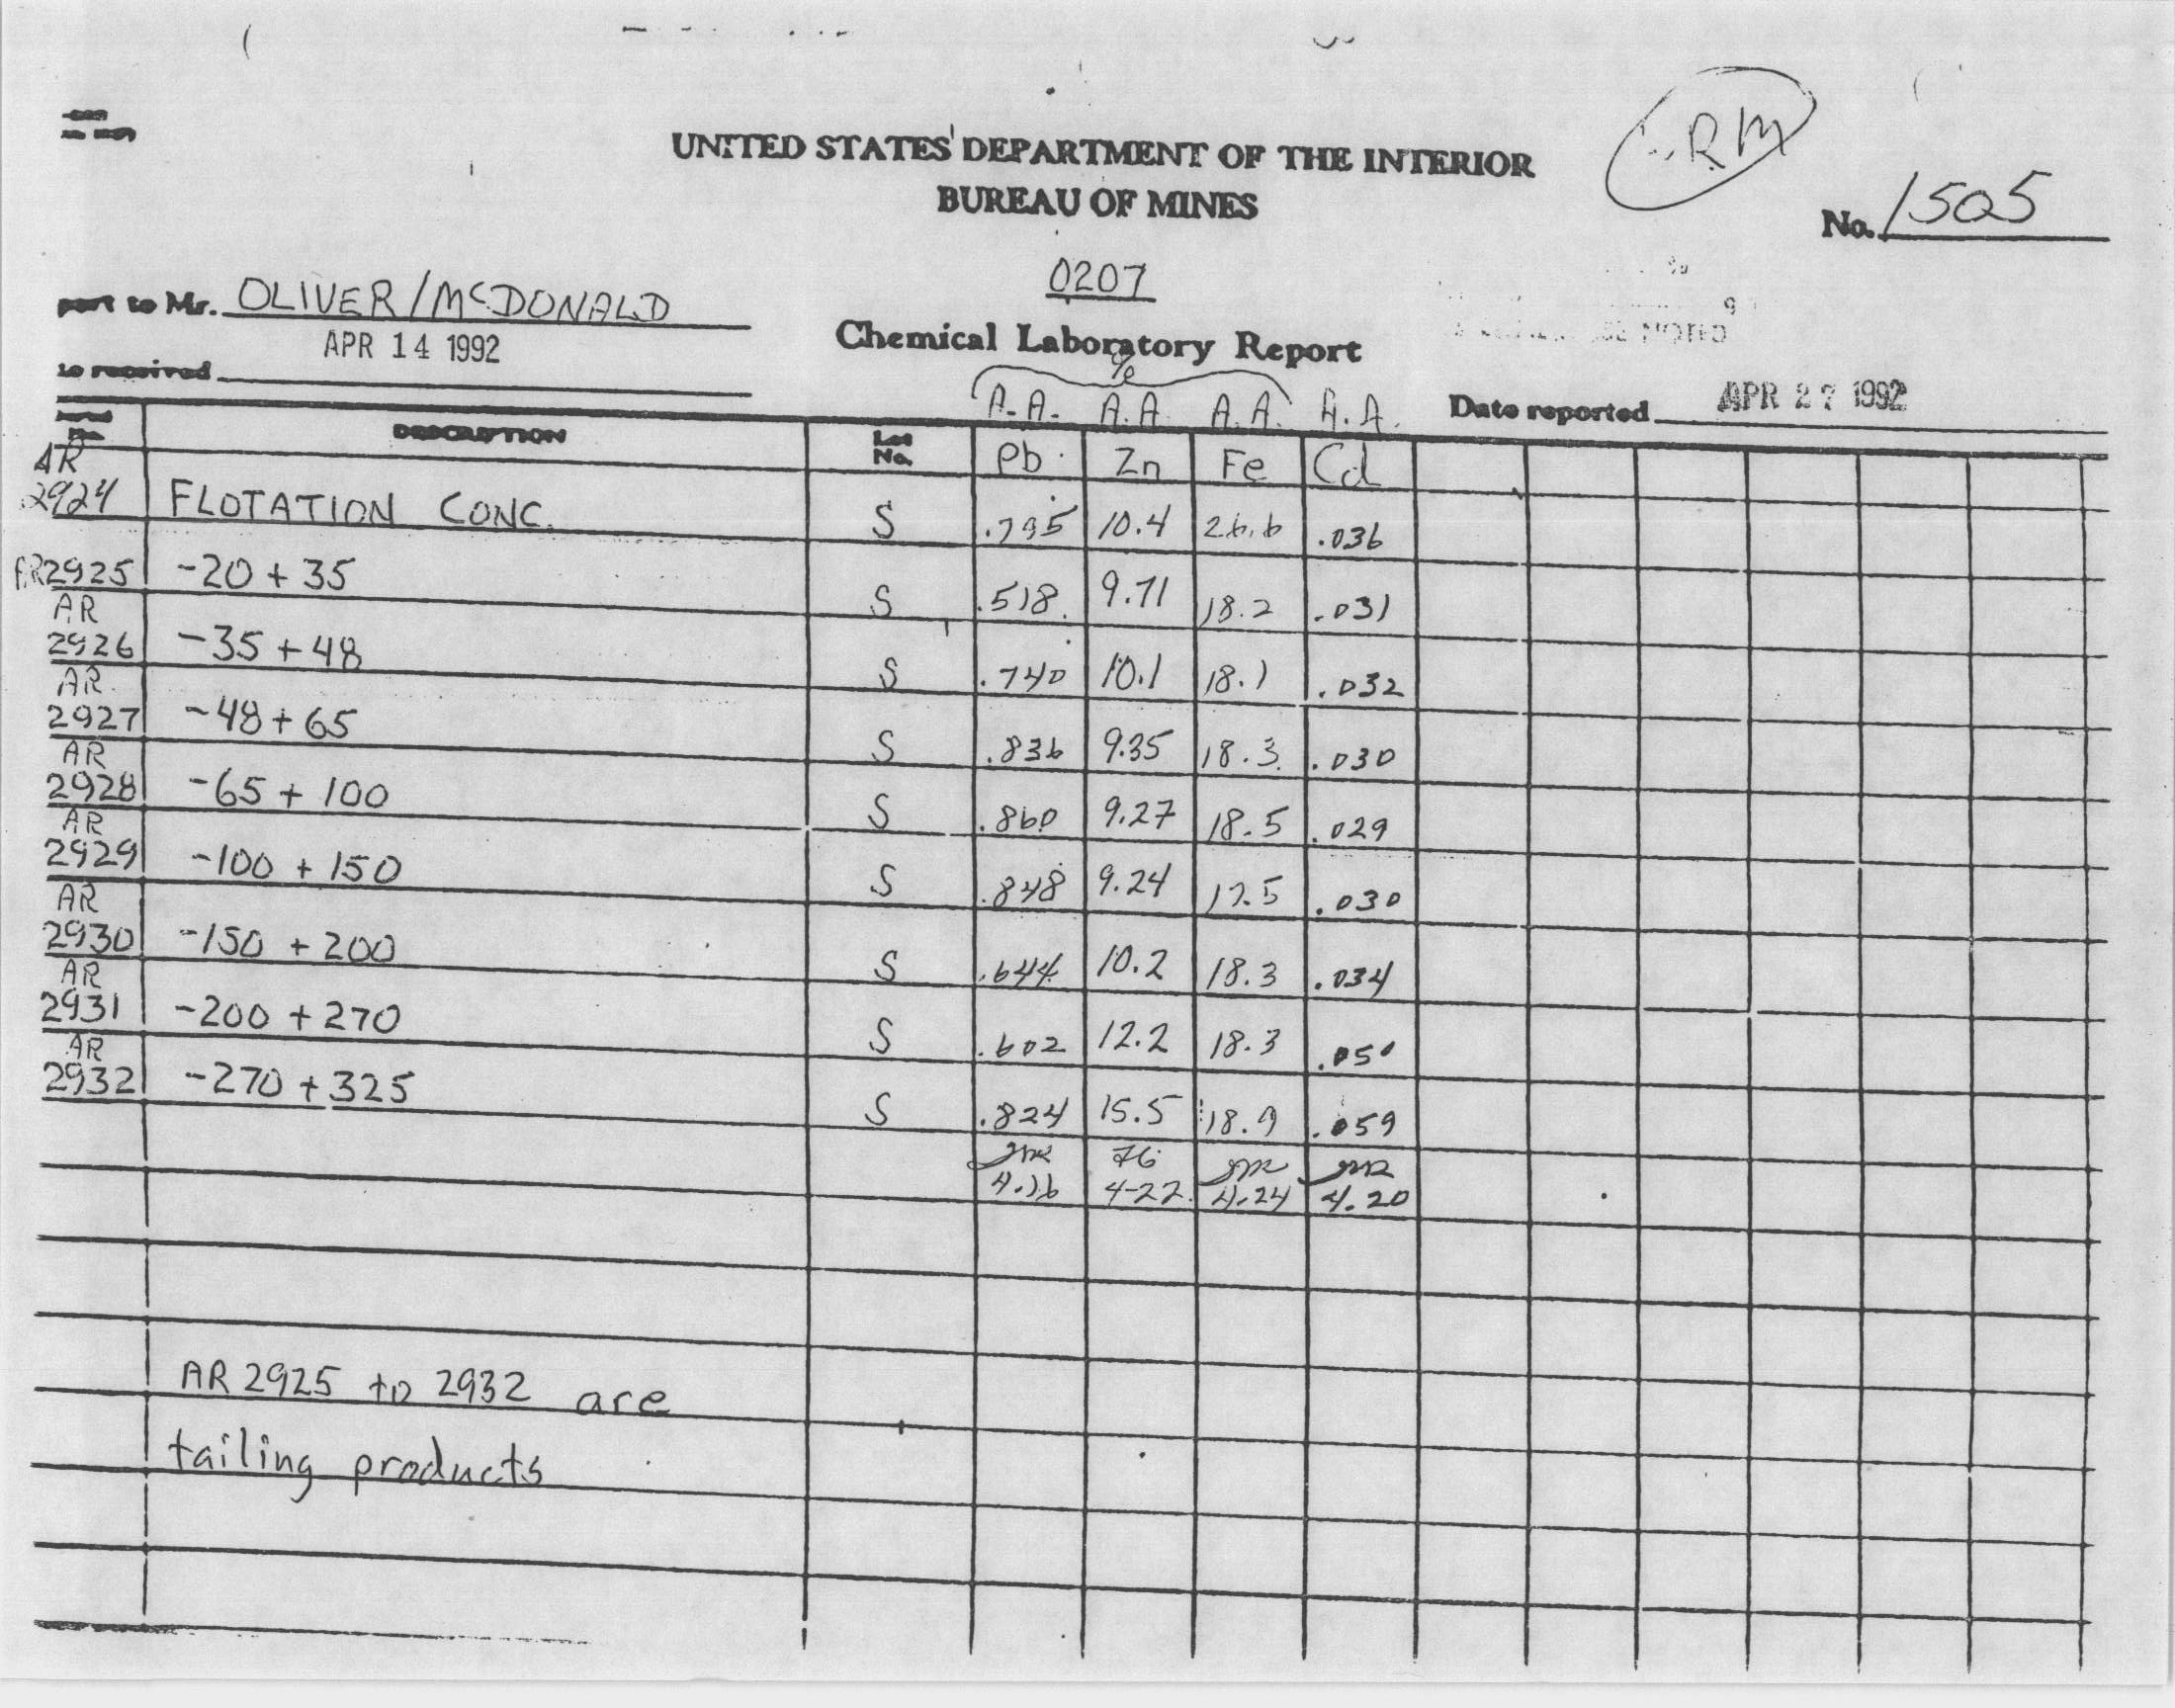 RM
UNITED STATES DEPARTMENT OF THE INTERIOR
BUREAU OF MINES
No. 1505
0207
port to Mr. OLIVER/McDONALD
APR 14 1992
Chemical Laboratory Report
NOTED
to received
%
A.A. A.A. A.A. A.A.
Date reported APR 27 1992
No. DESCRIPTION Lot No. Pb Zn Fe Cd
AR 2924 FLOTATION CONC. S .795 10.4 26.6 .036
AR2925 -20 + 35 S .518 9.71 18.2 .031
AR 2926 -35 + 48 S .740 10.1 18.1 .032
AR 2927 -48 + 65 S .836 9.35 18.3 .030
AR 2928 -65 + 100 S .860 9.27 18.5 .029
AR 2929 -100 + 150 S .848 9.24 17.5 .030
AR 2930 -150 + 200 S .644 10.2 18.3 .034
AR 2931 -200 + 270 S .602 12.2 18.3 .050
AR 2932 -270 + 325 S .824 15.5 18.9 .059
4.16 4-22 4.24 4.20
AR 2925 to 2932 are
tailing products